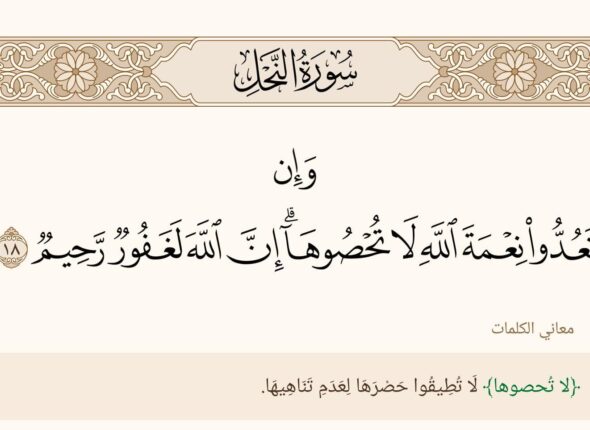 سُورَةُ النَّحْلِ
وَإِن
تَعُدُّوا۟ نِعْمَةَ ٱللَّهِ لَا تُحْصُوهَآ ۗ إِنَّ ٱللَّهَ لَغَفُورٌۭ رَّحِيمٌۭ ١٨
معاني الكلمات
﴿لا تُحصوها﴾ لَا تُطِيقُوا حَصْرَهَا لِعَدَمِ تَنَاهِيهَا.